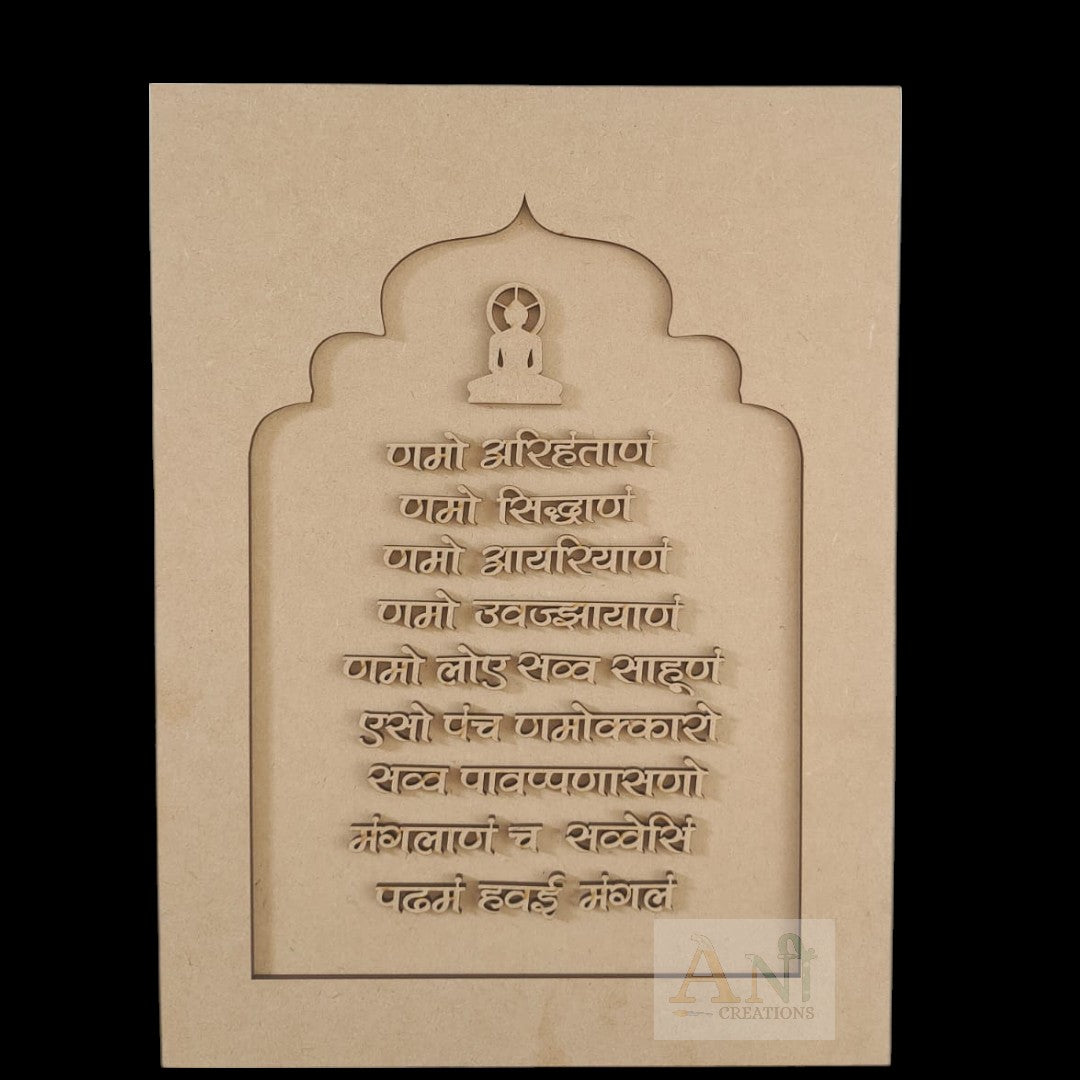 णमो अरिहंताणं
णमो सिद्धाणं
णमो आयरियाणं
णमो उवज्झायाणं
णमो लोए सव्व साहूणं
एसो पंच णमोक्कारो
सव्व पावप्पणासणो
मंगलाणं च सव्वेसिं
पढमं हवई मंगलं
Ani
CREATIONS